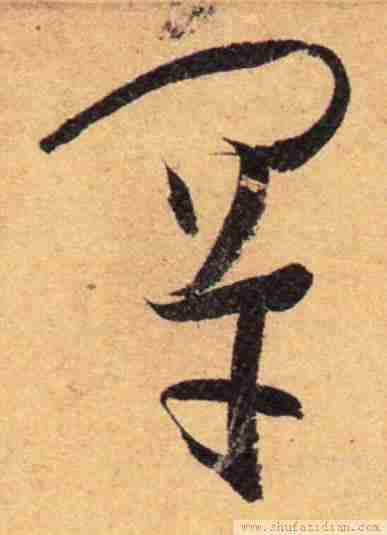 罕
www.shufazidian.com